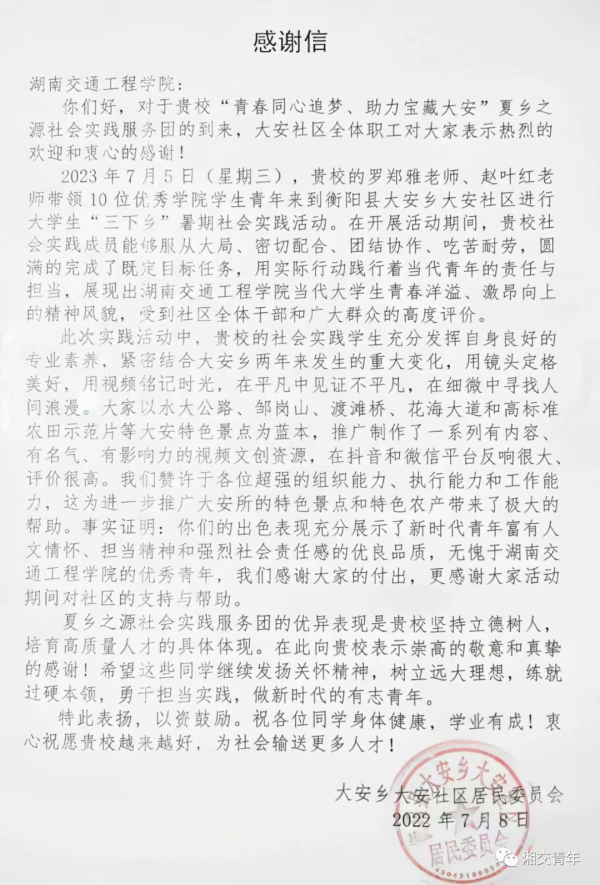 感谢信
湖南交通工程学院：
你们好，对于贵校“青春同心追梦、助力宝藏大安”夏乡之
源社会实践服务团的到来，大安社区全体职工对大家表示热烈的
欢迎和衷心的感谢！
2023年7月5日（星期三），贵校的罗郑雅老师、赵叶红老
师带领10位优秀学院学生青年来到衡阳县大安乡大安社区进行
大学生“三下乡”暑期社会实践活动。在开展活动期间，贵校社
会实践成员能够服从大局、密切配合、团结协作、吃苦耐劳，圆
满的完成了既定目标任务，用实际行动践行着当代青年的责任与
担当，展现出湖南交通工程学院当代大学生青春洋溢、激昂向上
的精神风貌，受到社区全体干部和广大群众的高度评价。
此次实践活动中，贵校的社会实践学生充分发挥自身良好的
专业素养，紧密结合大安乡两年来发生的重大变化，用镜头定格
美好，用视频铭记时光，在平凡中见证不平凡，在细微中寻找人
间浪漫。大家以水大公路、邹岗山、渡滩桥、花海大道和高标准
农田示范片等大安特色景点为蓝本，推广制作了一系列有内容、
有名气、有影响力的视频文创资源，在抖音和微信平台反响很大、
评价很高。我们赞许于各位超强的组织能力、执行能力和工作能
力，这为进一步推广大安所的特色景点和特色农产带来了极大的
帮助。事实证明：你们的出色表现充分展示了新时代青年富有人
文情怀、担当精神和强烈社会责任感的优良品质，无愧于湖南交
通工程学院的优秀青年，我们感谢大家的付出，更感谢大家活动
期间对社区的支持与帮助。
夏乡之源社会实践服务团的优异表现是贵校坚持立德树人，
培育高质量人才的具体体现。在此向贵校表示崇高的敬意和真挚
的感谢！希望这些同学继续发扬关怀精神，树立远大理想，练就
过硬本领，勇于担当实践，做新时代的有志青年。
特此表扬，以资鼓励。祝各位同学身体健康，学业有成！衷
心祝愿贵校越来越好，为社会输送更多人才！
大安乡大安社区居民委员会
2022年7月8日
县大安乡大安
居民委员会
湘交青年